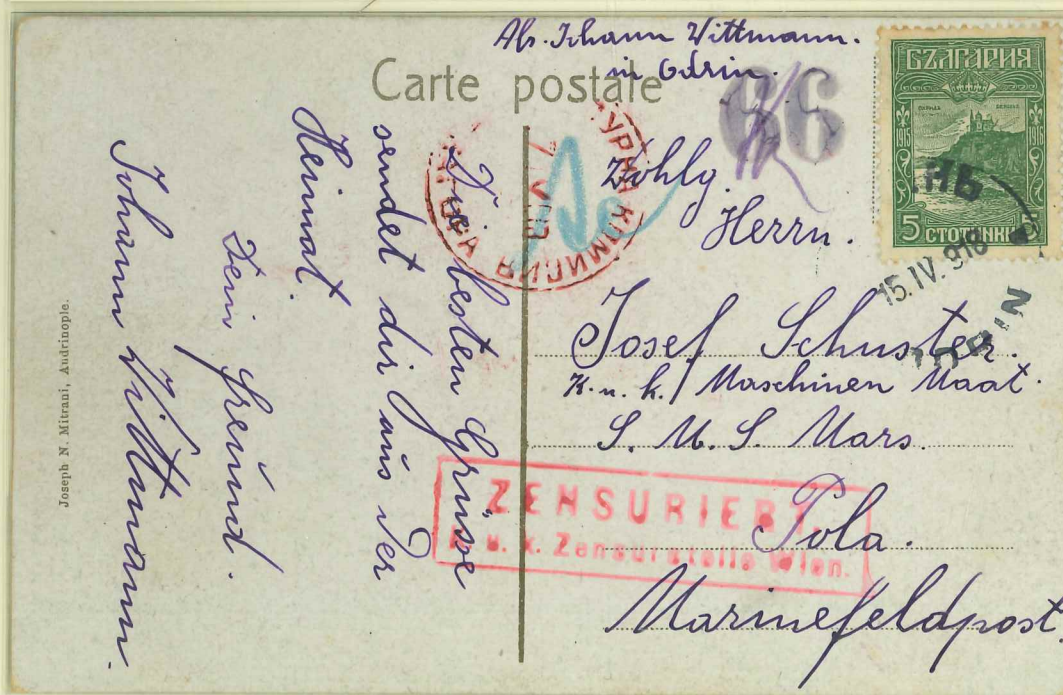 Abs. Johann Wittmann.
in Odrin.
Carte postale
66
БЪЛГАРИЯ
1915
1916
5 СТОТИНКИ
15.IV.918
Wohlg.
Herrn.
Josef Schuster.
K. u. k. Maschinen Maat.
S. M. S. Mars.
Pola.
Marinefeldpost.
ZENSURIERT.
K. u. K. Zensurstelle Wien.
Die besten Grüsse
sendet dir aus der
Heimat.
Dein Freund.
Johann Wittmann.
Joseph N. Mitrani, Andrinople.